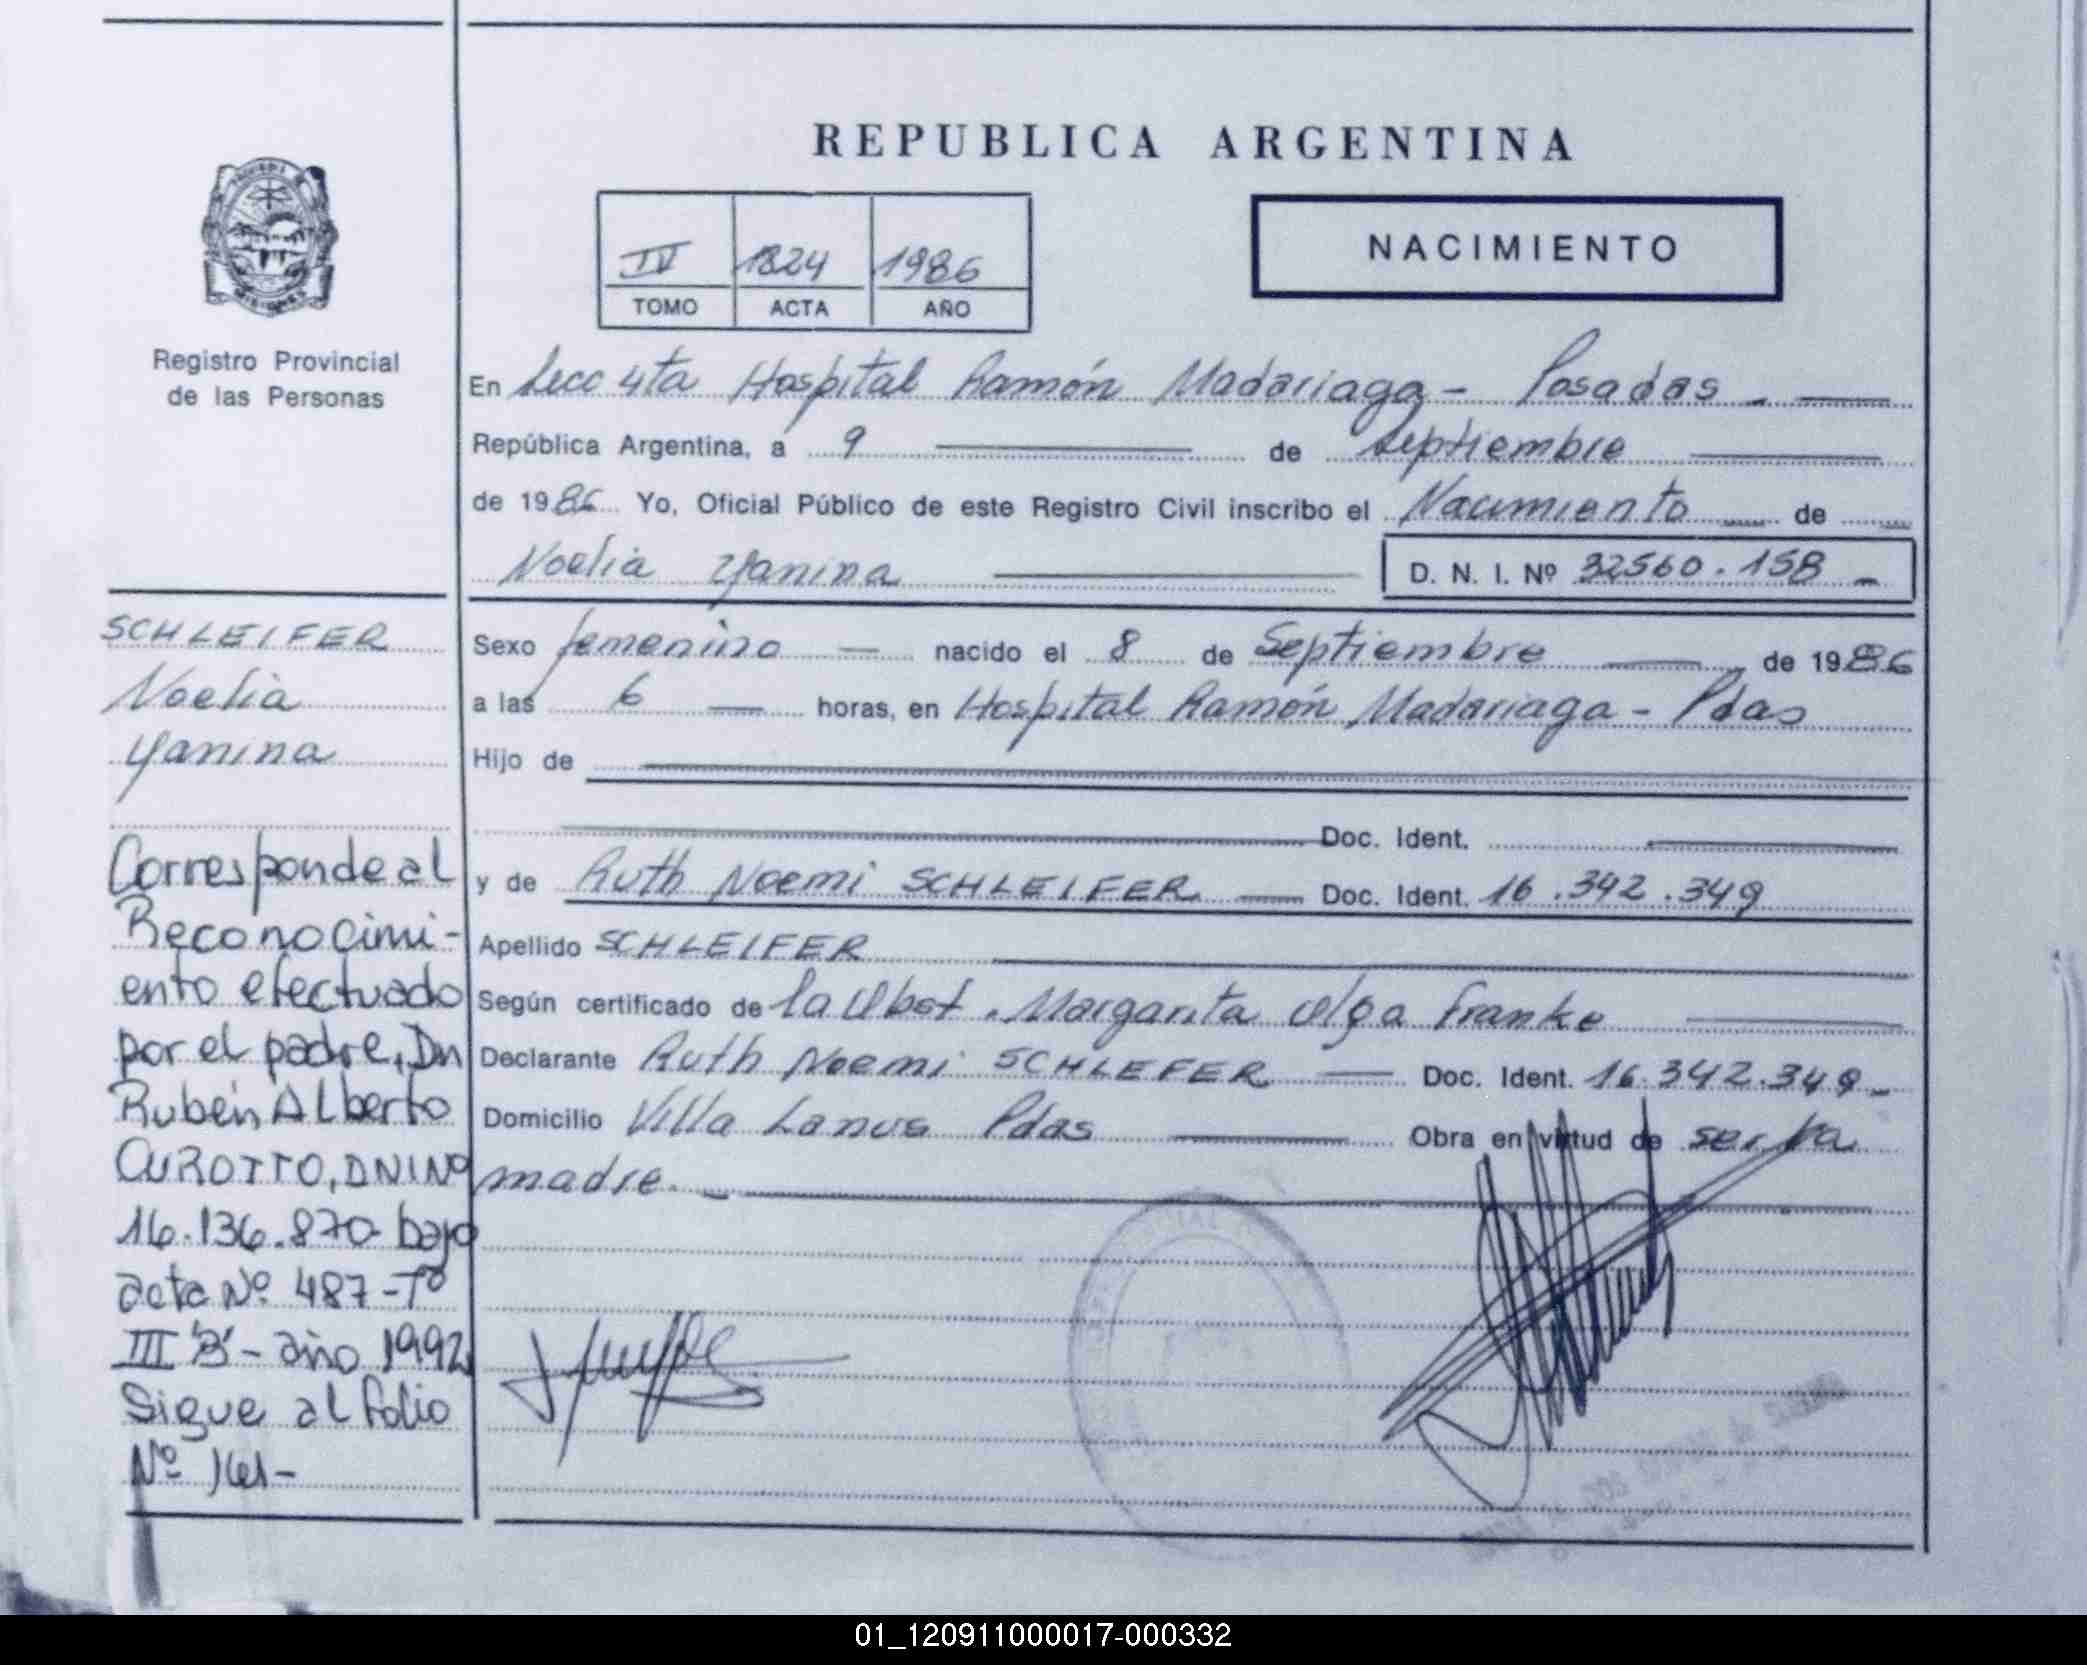 REPUBLICA ARGENTINA
IV 1824 1986
TOMO ACTA AÑO
NACIMIENTO
Registro Provincial
de las Personas
En Secc 4ta Hospital Ramón Madariaga - Posadas -
República Argentina, a 9 de septiembre
de 1986 Yo, Oficial Público de este Registro Civil inscribo el Nacimiento de
Noelia Yanina D. N. I. Nº 32560.158 -
SCHLEIFER
Noelia
Yanina
Sexo femenino nacido el 8 de Septiembre de 1986
a las 6 horas, en Hospital Ramón Madariaga - Pdas
Hijo de
Doc. Ident.
y de Ruth Noemi SCHLEIFER Doc. Ident. 16.342.349
Apellido SCHLEIFER
Según certificado de la Obst. Margarita Olga Franke
Declarante Ruth Noemi SCHLEFER Doc. Ident. 16.342.349-
Domicilio Villa Lanus Pdas Obra en virtud de ser la
madre. -
Corresponde al
Reconocimi-
ento efectuado
por el padre, Dn
Rubén Alberto
CUROTTO, DNI Nº
16.136.870 bajo
acta Nº 487-Tº
III "B" - año 1992
Sigue al folio
Nº 161-
01_120911000017-000332